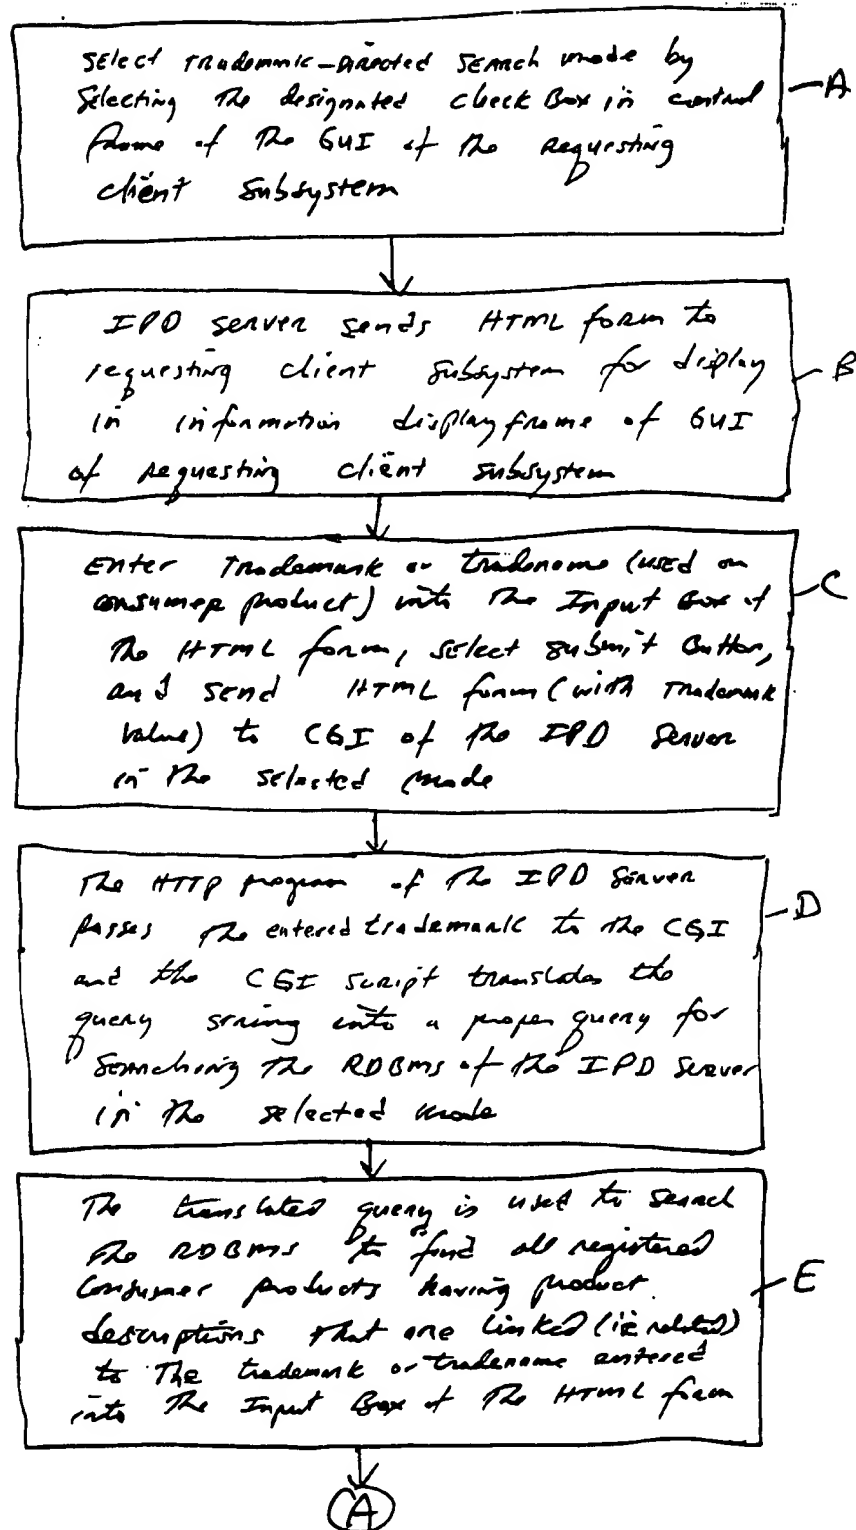 Select Trademark-Directed Search mode by
Selecting The designated check Box in control
frame of the GUI of the Requesting
client Subsystem
A
IPD server sends HTML form to
requesting client subsystem for display
in information display frame of GUI
of Requesting client subsystem
B
Enter Trademark or tradename (used on
consumer product) into The Input Box of
The HTML form, select submit Button,
and send HTML form (with Trademark
Value) to CGI of the IPD Server
in The selected mode
C
The HTTP program of The IPD Server
passes The entered trademark to the CGI
and the CGI script translates the
query string into a proper query for
Searching The RDBMS of the IPD Server
in The selected mode
D
The translated query is used to Search
The RDBMS to find all registered
Consumer products having product
descriptions that are linked (ie related)
to The trademark or tradename entered
into The Input Box of The HTML form
E
A